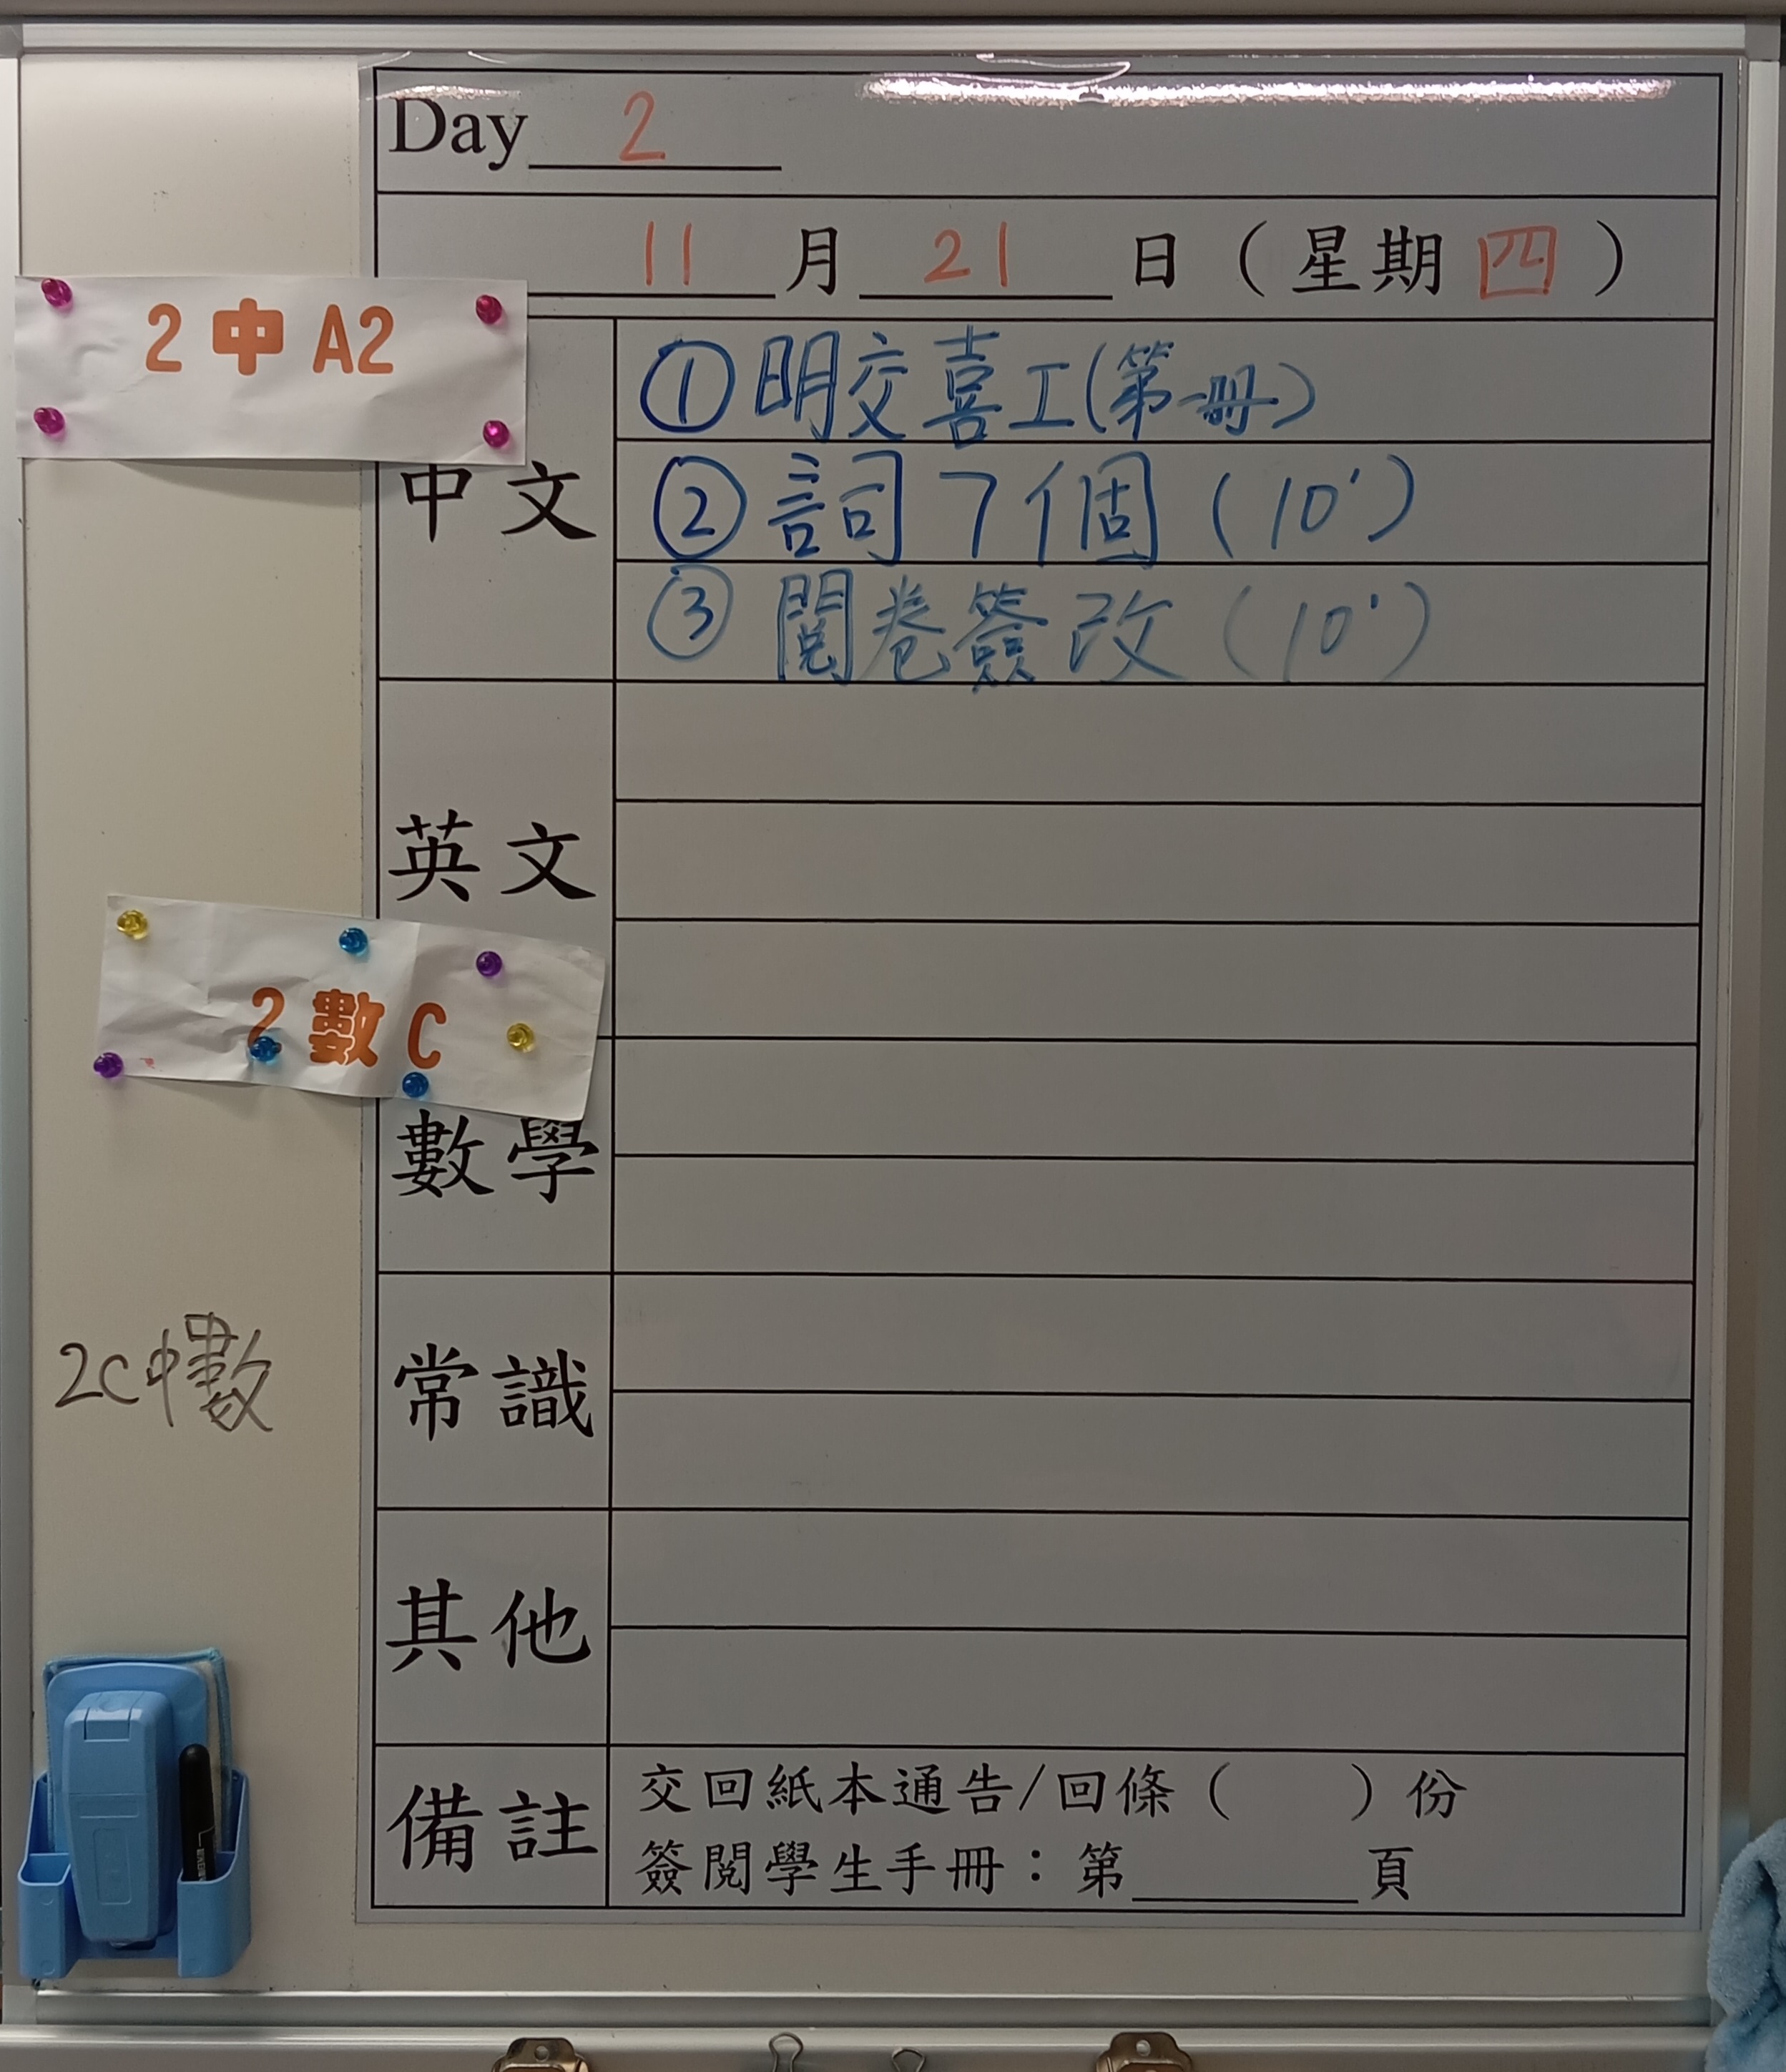 Day 2
11 月 21 日 (星期四)
2 中 A2
中文
①明交喜工(第一冊)
②詞7個(10')
③閱卷簽改(10')
英文
2 數 C
數學
2C中數
常識
其他
備註
交回紙本通告/回條( )份
簽閱學生手冊:第______頁